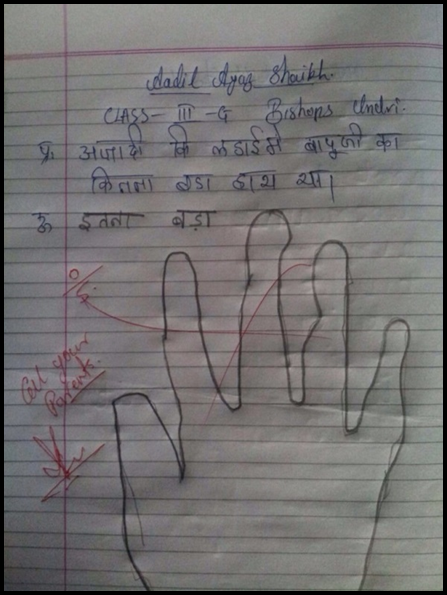 Aadil Ayaz Shaikh.
CLASS- III - G Bishops Undri.
प्र. अजादी कि लडाईमे बापुजी का
कितना बडा हाथ था।
उ इतना बड़ा
0/5.
Call your
Parents.